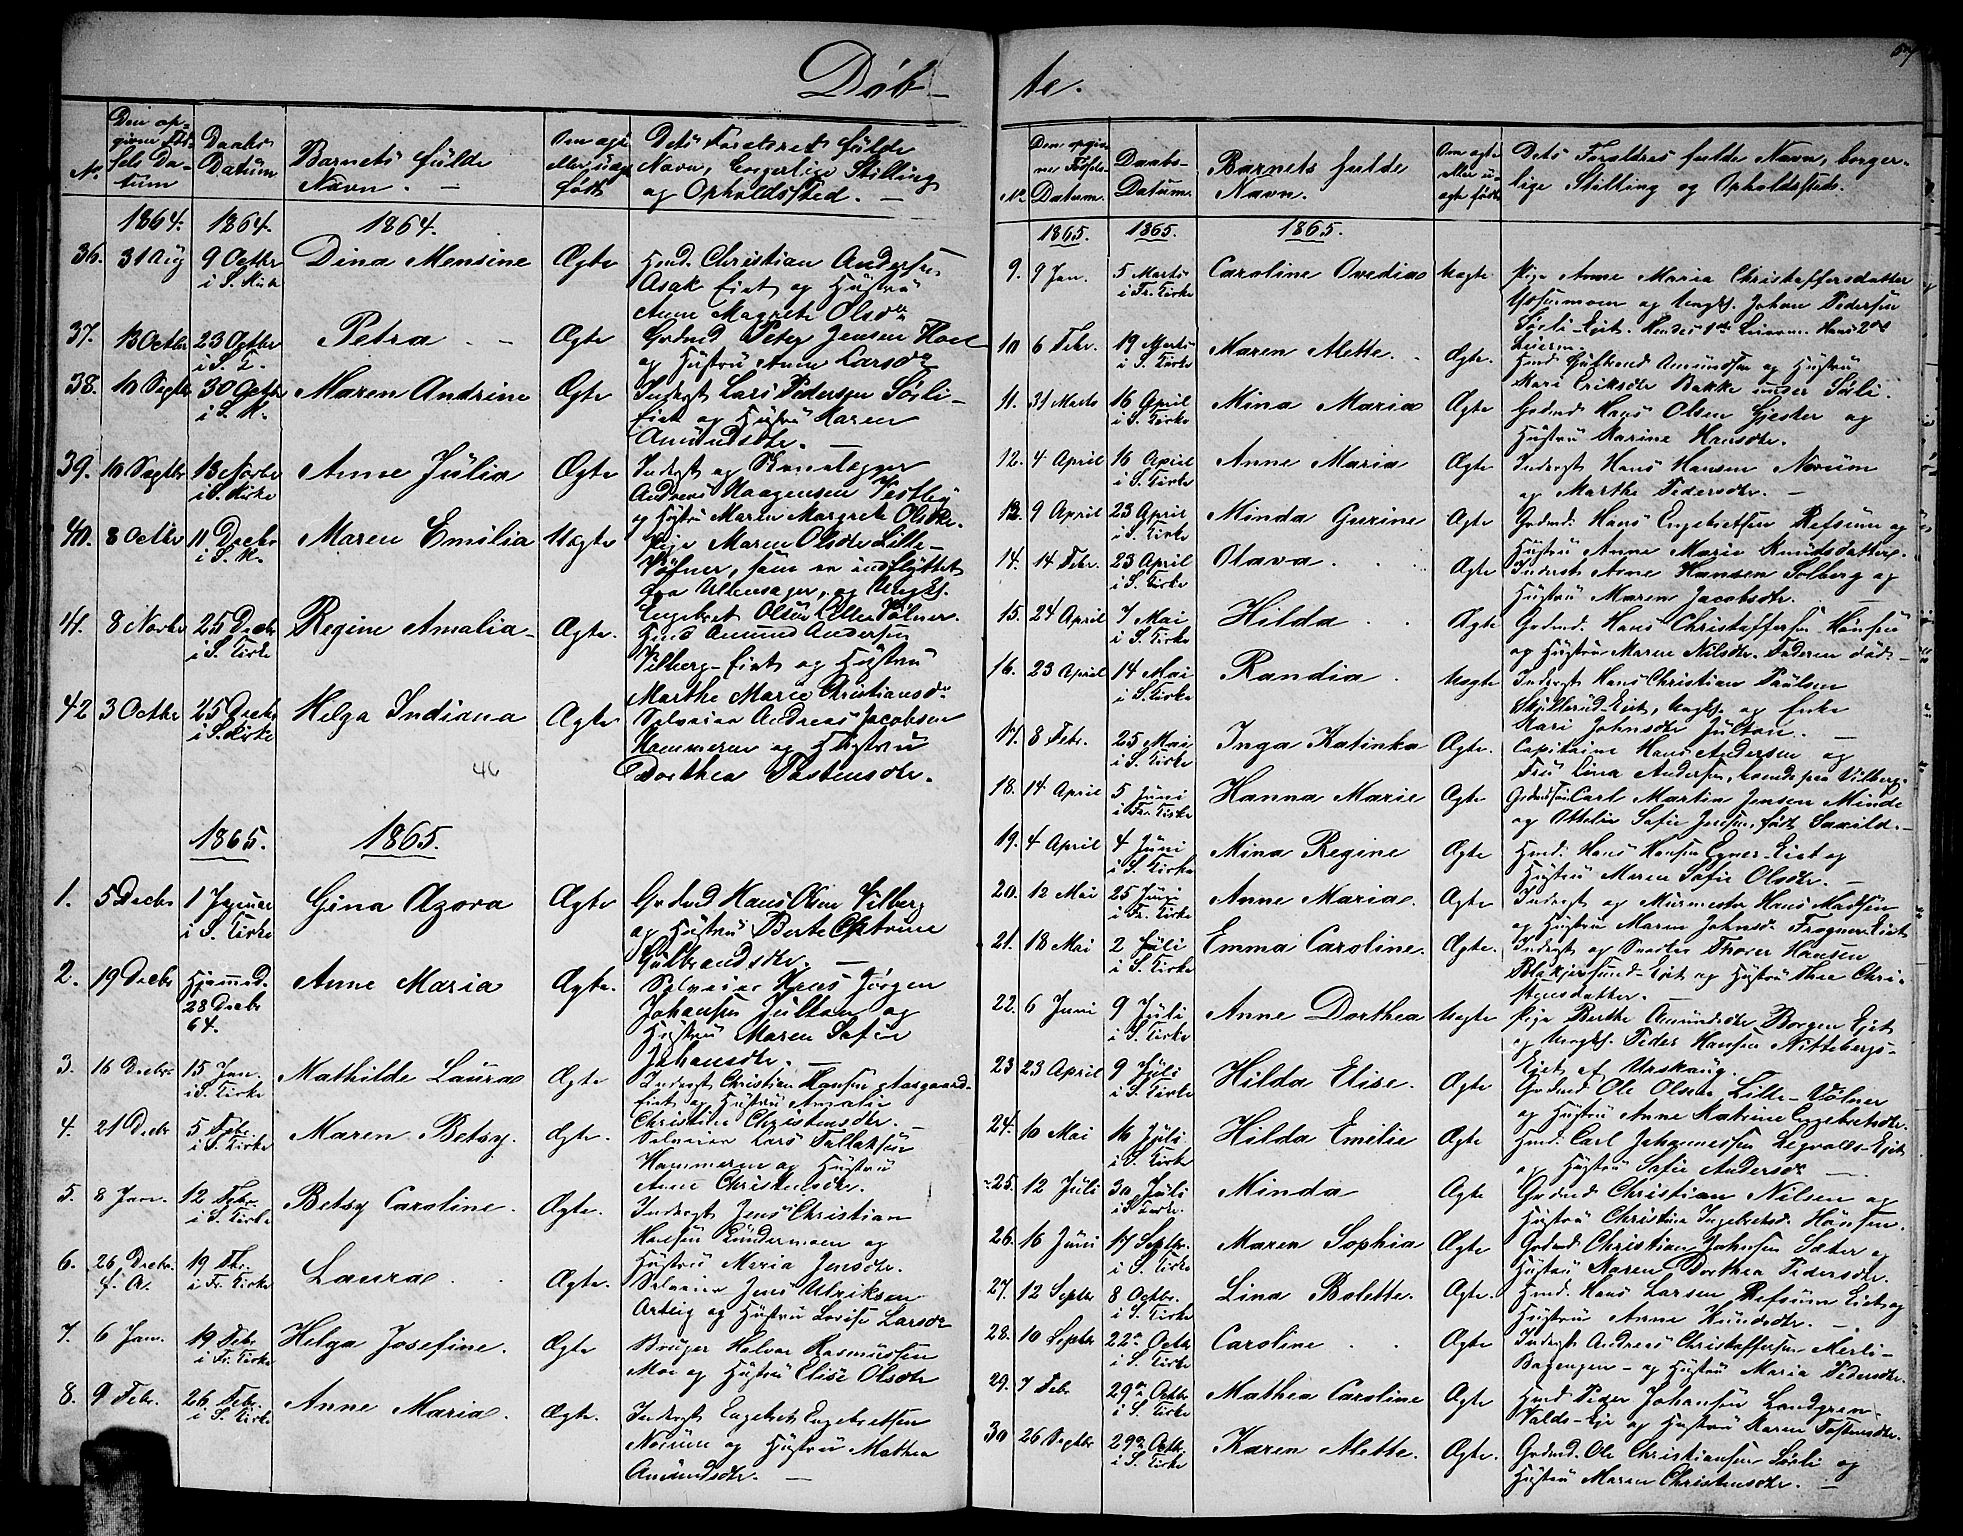 Døb-
No
Den op-
given Fød-
sels Da-
tum
Daabs
Datum
Barnets fulde
Navn. —
Om ægte
eller uægte
født
Dets Forældres fulde
Navn, borgerlige Stilling
og Opholdssted. —
1864. 1864. 1864.
36. 31 Aug 9 Octbr Dina Mensine Ægte Hmd. Christian Andersen
i S. Kirke Asak Eiet og Hustru
Anne Magrete Olsdtr
37. 13 Octbr 23 Octbr Petra - - Ægte Grdmd Peter Jensen Hoel
i S. K. og Hustru Anne Larsdtr
38. 10 Septbr 30 Octbr Maren Andrine Ægte Inderst Lars Pedersen Søsli-
i S. K. Eiet og Hustru Maren
Amundsdtr. —
39. 10 Septbr 13 Novbr Anne Julia Ægte Inderst og
i S. Kirke Andreas Haagensen Vestby
og Hustru Maren Margrete Olsdtr.
40. 8 Octbr 11 Decbr Maren Emilia Uægte Pige Maren Olsdtr Lille-
i S. K. Vølner, som er indflyttet
fra Ullensager, og Ungk.
Engebret Olsen Lille Vølner.
41. 8 Novbr 25 Decbr Regine Amalia Ægte. Hmd Amund Andersen
i S. Kirke Vilberg-Eiet og Hustru
Marthe Marie Christiansdtr
42 3 Octbr 25 Decbr Helga Indiana Ægte Selveier Andreas Jacobsen
i S. Kirke Hammeren og Hustru
Dorthea Tostensdtr.
46
1865. 1865.
1. 5 Decbr 1 Januar Gina Azora Ægte Grdmd Hans Olsen Vilberg
i S. Kirke og Hustru Berte
Gulbrandsdtr. —
2. 19 Decbr Hjemmed. Anne Maria Ægte. Selveier Hans Jørgen
28 Decbr Johansen Jultan og
64. Hustru Maren Sofie
Johansdtr. —
3. 16 Decbr 15 Jan. Mathilde Laura Ægte Inderst Christian Hansen
i S. Kirke Eiet og Hustru Amalie
Christine Christensdtr.
4. 21 Decbr 5 Febr. Maren Betsy. Ægte. Selveier Lars Tollefsen
i S. Kirke Hammeren og Hustru
Anne Christensdtr.
5. 8 Jan. 12 Febr. Betsy Caroline. Ægte. Inderst Jens Christian
i S. Kirke Hansen Rundermoen og
Hustru Maria Jensdtr.
6. 26 Decbr. 19 Fbr. Laura . . Ægte. Selveier Jens Ulriksen
f. A. i Fr. Kirke Arteig og Hustru Lovise Larsdtr
7. 6 Jan. 19 Febr. Helga Josefine. Ægte. Bruger Halvor Rasmussen
i Fr. Kirke Moe og Hustru Elise Olsdtr
8. 9 Febr. 26 Febr. Anne Maria. Ægte. Inderst Engebret Engebretsen
i S. Kirke Norum og Hustru Mathea
Amundsdtr. —
te.
67
No
Den opgiv-
ne Fødsels-
Datum.
Daabs-
Datum.
Barnets fulde
Navn.
Om ægte
eller u-
ægte født
Dets Forældres fulde Navn, borger-
lige Stilling og Opholdssted.
1865. 1865. 1865.
9. 9 Jan. 5 Marts Caroline Ovedia Uægte Pige Anne Maria Christoffersdatter
i Fr. Kirke og Ungk. Johan Pedersen
Søsli-Eiet. Hendes 1ste Leierm. Hans 2det
Leierm.
10 6 Febr. 19 Marts Maren Alette. . Ægte. Hmd. Gulbrand Amundsen og Hustru
i S. Kirke Mari Eriksdtr Bakke under Søsli.
11. 31 Marts 16 April Mina Maria Ægte Grdmd Hans Olsen Gjester og
i S. Kirke Hustru Karine Hansdtr.
12. 4 April 16 April Anne Maria Ægte Inderst Hans Hansen Norum
i S. Kirke og Marthe Pedersdtr. —
13. 9 April 23 April Minda Gurine Ægte Grdmd: Hans Engebretsen Refsum og
i S. Kirke Hustru Anne Marie Knudsdatter.
14. 14 Febr. 23 April Olava . . Ægte Inderst Arne Hansen Solberg og
i S. Kirke Hustru Maren Jacobsdtr. —
15. 24 April 7 Mai Hilda . . Ægte Grdmd. Hans Christoffersen Hønsen
i S. Kirke og Hustru Maren Nilsdtr. Faderen død —
16. 23 April 14 Mai Randia . Uægte Inderst Hans Christian Paulsen
i S. Kirke Eiet, Ungk. og Enke
Kari Johnsdtr Jultan. —
17. 8 Febr. 25 Mai Inga Katinka Ægte. Capitaine Hans Andersen og
i S. Kirke Fru Lina Andersen, boende paa Vilberg.
18. 14 April 5 Juni Hanna Marie Ægte Carl Martin Jensen Minde
i Fr. Kirke og Ottilia Sofie Jensen, født
19. 4 April 4 Juni Mina Regine Ægte Hmd. Hans Hansen Egner-Eiet og
i S. Kirke Hustru Maren Sofie Olsdtr. —
20. 12 Mai 25 Juni Anne Maria. Ægte Inderst og Murmester Hans Madsen
i Fr. Kirke og Hustru Maren Johnsd. Frogner Eiet
21. 18 Mai 2 Juli Emma Caroline. Ægte. Inderst og Snedker Thorer Hansen
i S. Kirke Blakjersund-Eiet og Hustru Thea Chri-
stensdatter. —
22. 6 Juni 9 Juli Anne Dorthea Uægte Pige Berthe Amundsdtr Borgen Eiet
i S. Kirke og Ungk. Peder Hansen Nitteberg-
Eiet af Urskoug.
23 23 April 9 Juli Hilda Elise. Ægte Grdmd. Ole Olsen Lille-Vølner
i S. Kirke og Hustru Anne Katrine Eggebretsdtr.
24. 10 Mai 16 Juli Hilda Emilie Ægte Hmd. Carl Johannessen Legvolds-Eiet
i S. Kirke og Hustru Sofie Andersdtr —
25. 12 Juli 30 Juli Minda Ægte Grdmd Christian Nilsen og
i S. Kirke. Hustru Christine Ingebretsd. Hønsen.
26. 16 Juni 17 Septbr. Maren Sophia Ægte Grdmd. Christian Johnsen Sæter og
i S. Kirke Hustru Maren Dorthea Pedersdtr.
27. 12 Septbr 8 Octbr. Lina Bolette. Ægte. Hmd. Hans Larsen Refsum Eiet og
i S. Kirke Hustru Anne Knudsdtr. —
28. 10 Septbr 22de Octb Caroline . . Ægte Inderst Andreas Christoffersen Merli-
i S. Kirke Bagengen - og Hustru Maria Pedersdtr.
29. 7 Febr 29de Octbr Mathea Caroline Ægte Hmd Peder Johansen Landgren-
i S. Kirke Valds-Eje og Hustru Karen Tostensdtr.
30 26 Septbr 29de Octb. Karen Alette. Ægte. Grdmd. Ole Christiansen Søsli og
i S. Kirke Hustru Maren Christensdtr. —